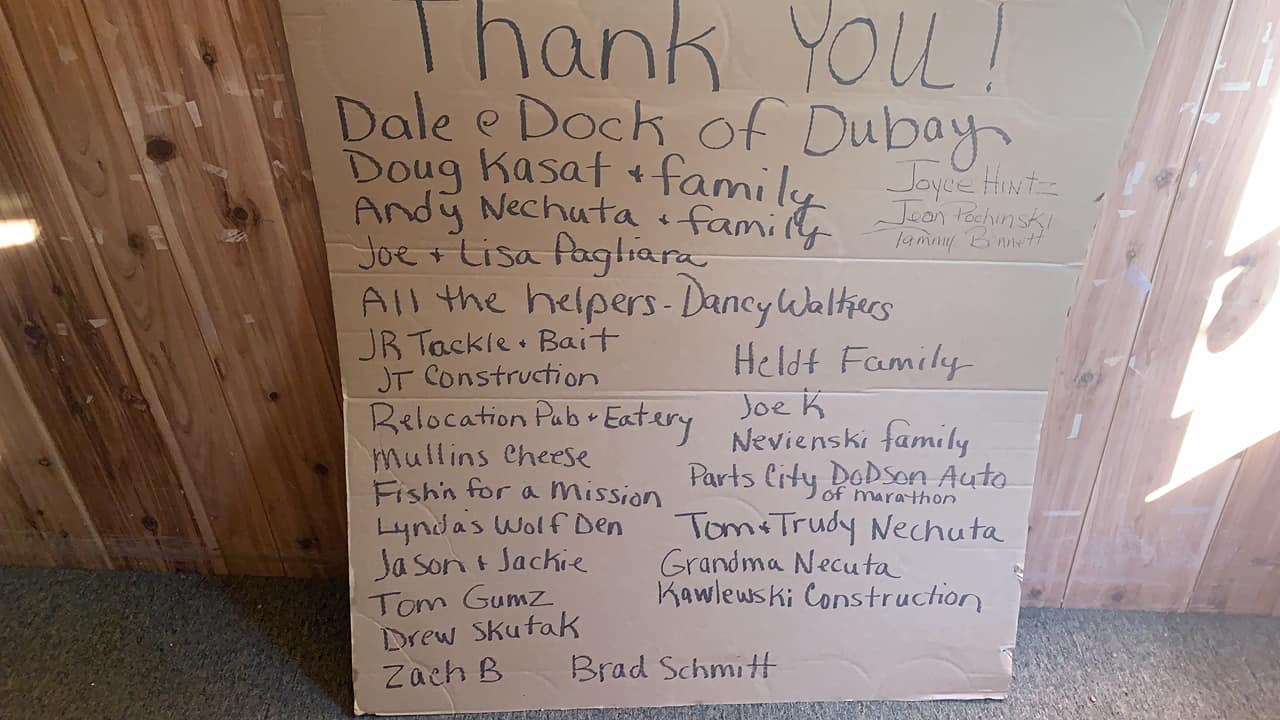 Thank You!
Dale e Dock of Dubay
Doug Kasat + family
Joyce Hintz
Andy Nechuta + family
Jean Pochinski
Tammy Bennett
Joe + Lisa Pagliara
All the helpers - Dancy Walkers
JR Tackle + Bait
Heldt Family
JT Construction
Joe K
Relocation Pub + Eatery
Nevienski family
Mullins Cheese
Parts City DoDson Auto
of marathon
Fish'n for a Mission
Lynda's Wolf Den
Tom + Trudy Nechuta
Jason + Jackie
Grandma Necuta
Tom Gumz
Kawlewski Construction
Drew Skutak
Zach B
Brad Schmitt